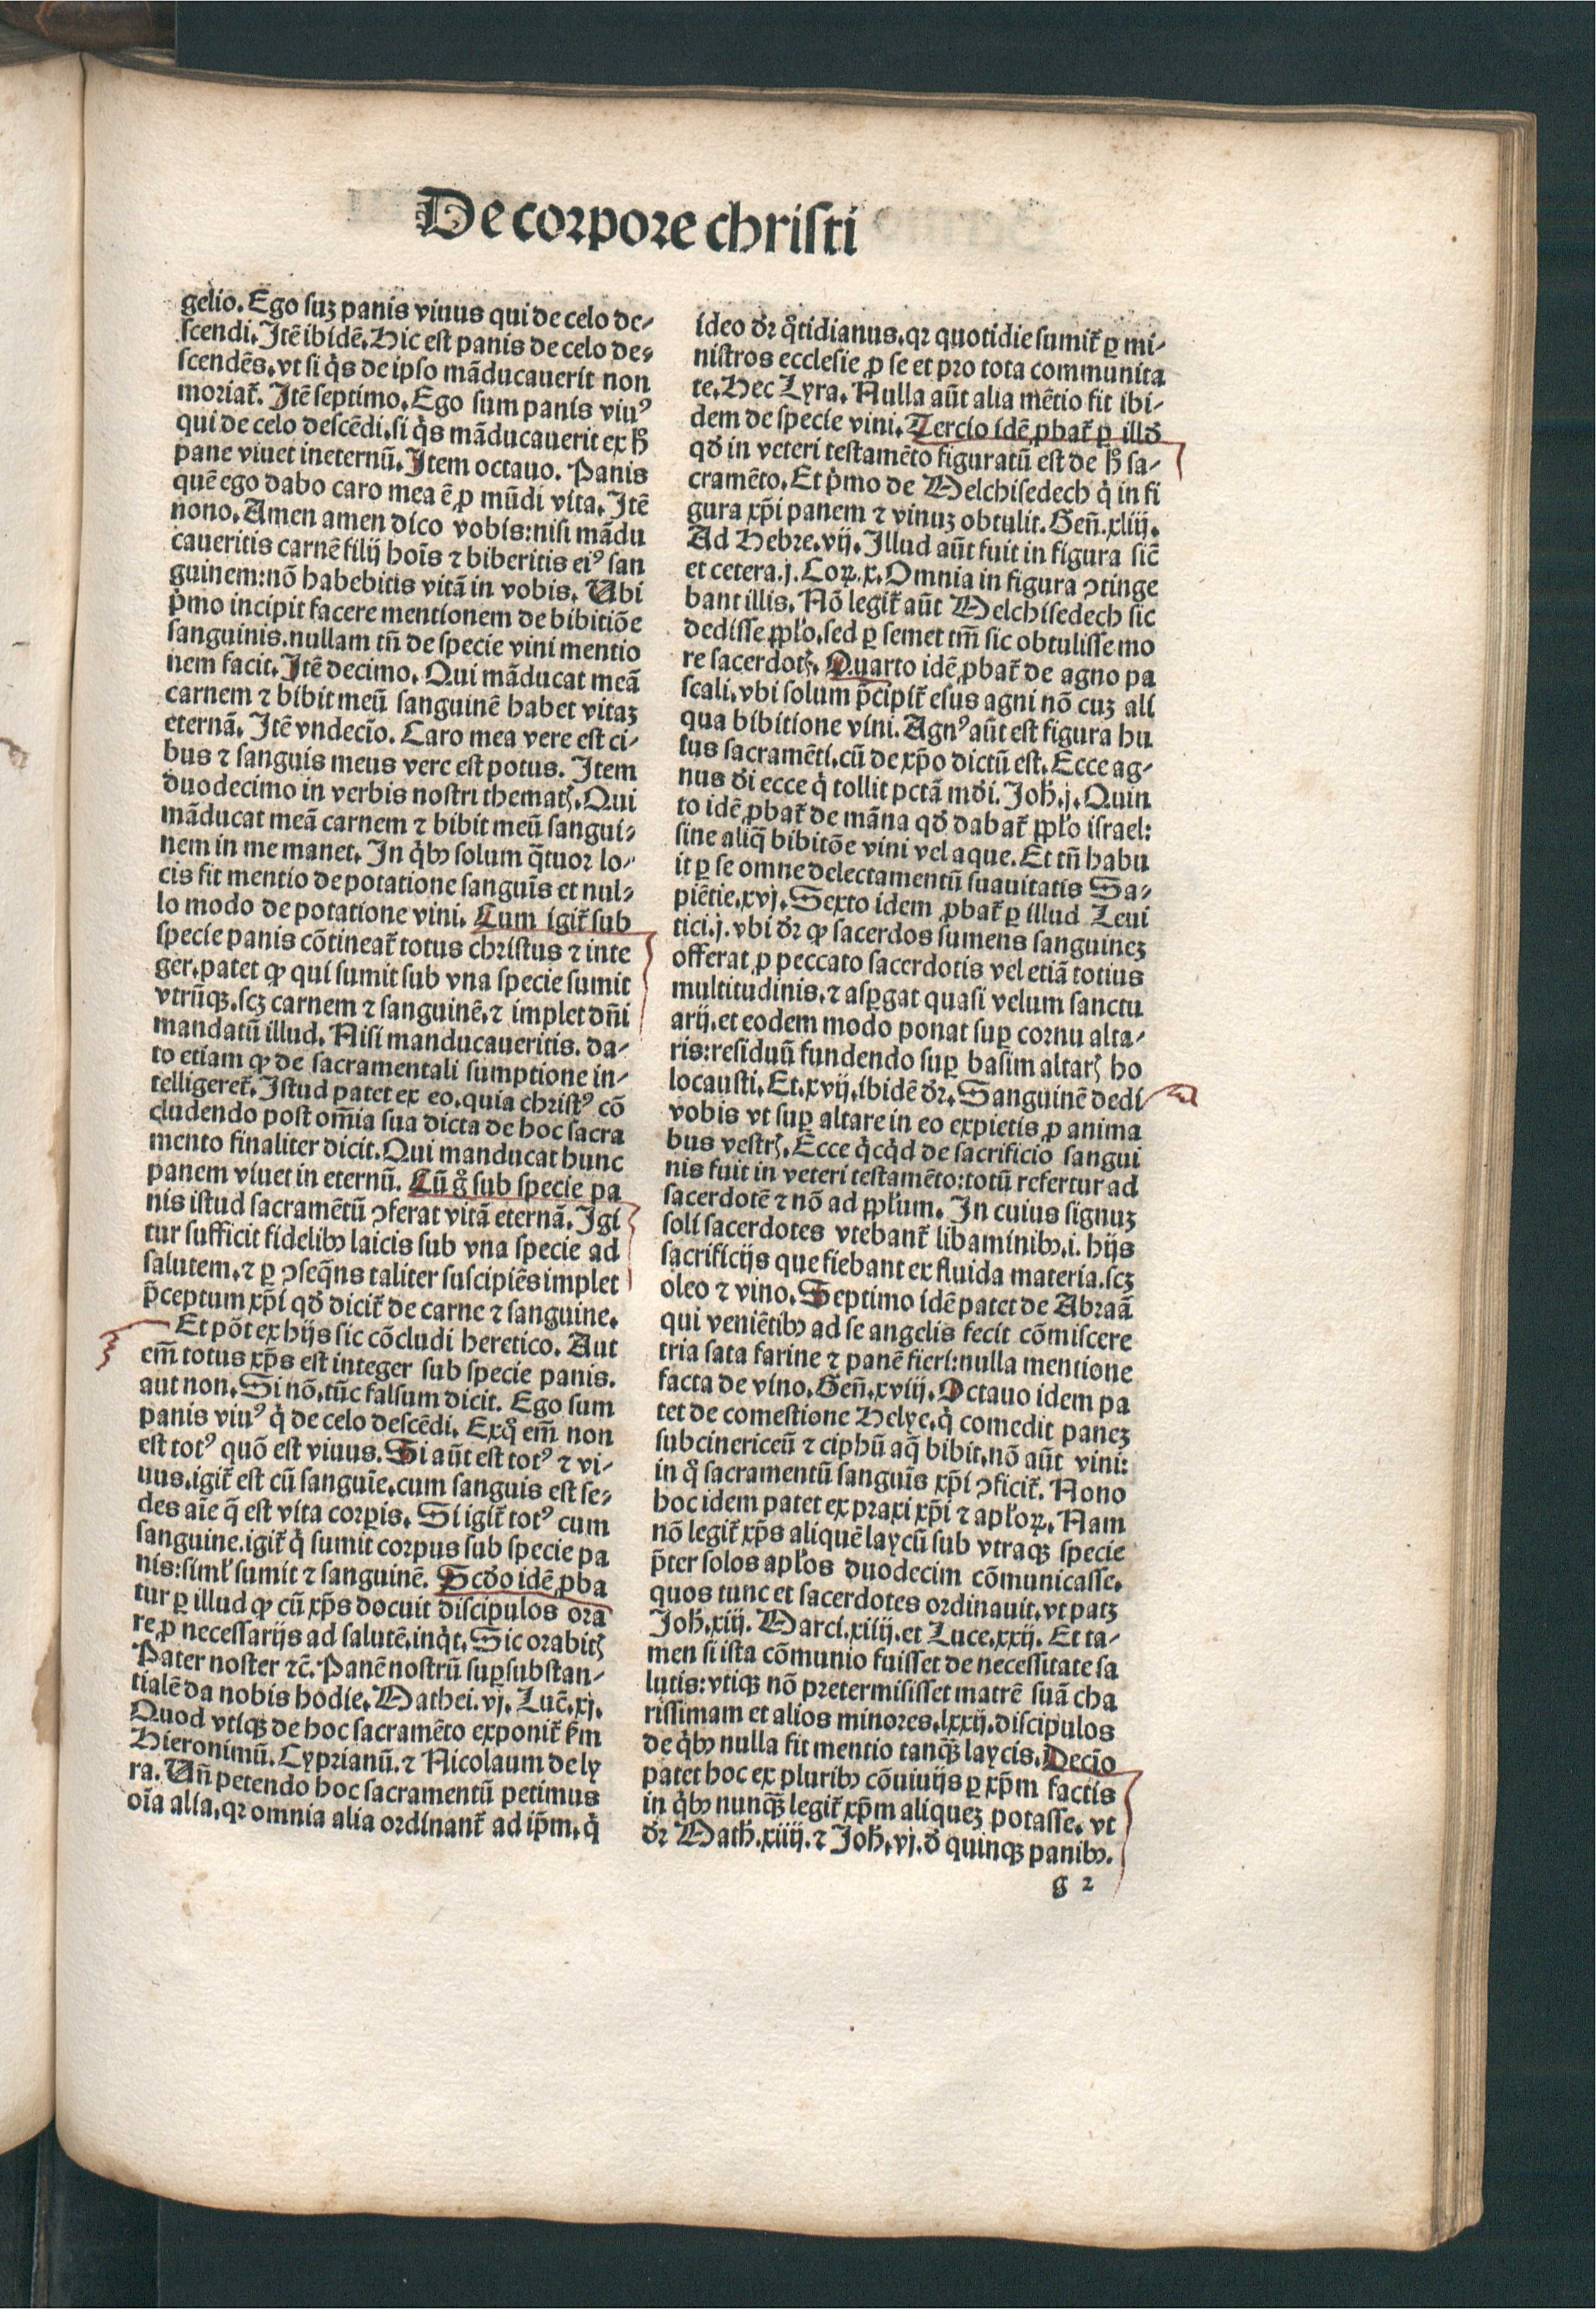 De corpore christi
gelio. Ego suꝫ panis viuus qui de celo de⸗
scendi. Itē ibidē. Hic est panis de celo de⸗
scendēs. vt si q̇s de ipso māducauerit non
moriat᷑. Itē septimo. Ego sum panis viuꝰ
qui de celo descēdi. si q̇s māducauerit ex h̄
pane viuet ineternū. Item octauo. Panis
quē ego dabo caro mea ē ꝓ mūdi vita. Itē
nono. Amen amen dico vobis: nisi mādu
caueritis carnē filij hoīs ⁊ biberitis eiꝰ san
guinem: nō habebitis vitā in vobis. Ubi
p̓mo incipit facere mentionem de bibitiōe
sanguinis. nullam tn̄ de specie vini mentio
nem facit. Itē decimo. Qui māducat meā
carnem ⁊ bibit meū sanguinē habet vitaꝫ
eternā. Itē vndecīo. Caro mea vere est ci⸗
bus ⁊ sanguis meus vere est potus. Item
duodecimo in verbis nostri thematꝭ. Qui
māducat meā carnem ⁊ bibit meū sangui⸗
nem in me manet. In q̇bꝰ solum q̄tuor lo⸗
cis fit mentio de potatione sanguīs et nul⸗
lo modo de potatione vini. Cum igit᷑ sub
specie panis cōtineat᷑ totus christus ⁊ inte
ger. patet ꝙ qui sumit sub vna specie sumit
vtrūqꝫ. scꝫ carnem ⁊ sanguinē. ⁊ implet dn̄i
mandatū illud. Nisi manducaueritis. da⸗
to etiam ꝙ de sacramentali sumptione in⸗
telligeret᷑. Istud patet ex eo. quia christꝰ cō
cludendo post om̄ia sua dicta de hoc sacra
mento finaliter dicit. Qui manducat hunc
panem viuet in eternū. Cū g̊ sub specie pa
nis istud sacramētū ꝯferat vitā eternā. Igi
tur sufficit fidelibꝰ laicis sub vna specie ad
salutem. ⁊ ꝑ ꝯseq̄ns taliter suscipiēs implet
p̄ceptum xp̄i qd̓ dicit᷑ de carne ⁊ sanguine.
Et pōt ex hijs sic cōcludi heretico. Aut
em̄ totus xp̄s est integer sub specie panis.
aut non. Si nō. tūc falsum dicit. Ego sum
panis viuꝰ q̇ de celo descēdi. Exq̊ em̄ non
est totꝰ quō est viuus. Si aūt est totꝰ ⁊ vi⸗
uus. igit᷑ est cū sanguīe. cum sanguis est se⸗
des aīe q̄ est vita corꝑis. Si igit᷑ totꝰ cum
sanguine. igit᷑ q̇ sumit corpus sub specie pa
nis: siml̓ sumit ⁊ sanguinē. Scd̓o idē ꝓba
tur ꝑ illud ꝙ cū xp̄s docuit discipulos ora
re. ꝓ necessarijs ad salutē. inq̇t. Sic orabitꝭ
Pater noster ⁊c̄. Panē nostrū suꝑsubstan⸗
tialē da nobis hodie. Mathei. vj. Lucē. xj.
Quod vtiqꝫ de hoc sacramēto exponit᷑ ẜm
Hieronimū. Cyprianū. ⁊ Nicolaum de ly
ra. Un̄ petendo hoc sacramentū petimus
oīa alia. qꝛ omnia alia ordinant᷑ ad ip̄m. q̇
ideo dꝛ̓ q̊tidianus. qꝛ quotidie sumit᷑ ꝑ mi⸗
nistros ecclesie ꝓ se et pro tota communita
te. Hec Lyra. Nulla aūt alia mētio fit ibi⸗
dem de specie vini. Tercio idē ꝓbat᷑ ꝑ illd̓
qd̓ in veteri testamēto figuratū est de h̄ sa⸗
cramēto. Et p̓mo de Melchisedech q̇ in fi
gura xp̄i panem ⁊ vinuꝫ obtulit. Gen̄. xliij.
Ad Hebre. vij. Illud aūt fuit in figura sic̄
et cetera. j. Coꝝ. x. Omnia in figura ꝯtinge
bant illis. Nō legit᷑ aūt Melchisedech sic
dedisse ppl̓o. sed ꝑ semet tm̄ sic obtulisse mo
re sacerdotꝭ. Quarto idē ꝓbat᷑ de agno pa
scali. vbi solum p̄cipit᷑ esus agni nō cuꝫ ali
qua bibitione vini. Agnꝰ aūt est figura hu
ius sacramēti. cū de xp̄o dictū est. Ecce ag⸗
nus d̓i ecce q̇ tollit pctā md̓i. Joh̓. j. Quin
to idē ꝓbat᷑ de māna qd̓ dabat᷑ ppl̓o israel:
sine aliq̄ bibitōe vini vel aque. Et tn̄ habu
it ꝑ se omne delectamentū suauitatis Sa⸗
piētie. xvj. Sexto idem ꝓbat᷑ ꝑ illud Leui
tici. j. vbi dꝛ̓ ꝙ sacerdos sumens sanguineꝫ
offerat ꝓ peccato sacerdotis vel etiā totius
multitudinis. ⁊ asꝑgat quasi velum sanctu
arij. et eodem modo ponat suꝑ cornu alta⸗
ris: residuū fundendo suꝑ basim altarꝭ ho
locausti. Et. xvij. ibidē dꝛ̓. Sanguinē dedi
vobis vt suꝑ altare in eo expietis ꝓ anima
bus vestrꝭ. Ecce q̇cq̇d de sacrificio sangui
nis fuit in veteri testamēto: totū refertur ad
sacerdotē ⁊ nō ad ppl̓um. In cuius signuꝫ
soli sacerdotes vtebant᷑ libaminibꝰ. i. hijs
sacrificijs que fiebant ex fluida materia. scꝫ
oleo ⁊ vino. Septimo idē patet de Abraā
qui veniētibꝰ ad se angelis fecit cōmiscere
tria sata farine ⁊ panē fieri: nulla mentione
facta de vino. Gen̄. xviij. Octauo idem pa
tet de comestione Helye. q̇ comedit paneꝫ
subcinericeū ⁊ ciphū aq̄ bibit. nō aūt vini:
in q̊ sacramentū sanguīs xp̄i ꝯficit᷑. Nono
hoc idem patet ex praxi xp̄i ⁊ apl̓oꝝ. Nam
nō legit᷑ xp̄s aliquē laycū sub vtraqꝫ specie
p̄ter solos apl̓os duodecim cōmunicasse.
quos tunc et sacerdotes ordinauit. vt patꝫ
Joh̓. xiij. Marci. xiiij. et Luce. xxij. Et ta⸗
men si ista cōmunio fuisset de necessitate sa
lutis: vtiqꝫ nō pretermisisset matrē suā cha
rissimam et alios minores. lxxij. discipulos
de q̇bꝰ nulla fit mentio tanqꝫ̄ laycis. Decīo
patet hoc ex pluribꝰ cōuiuijs ꝑ xp̄m factis
in q̇bꝰ nunqꝫ̄ legit᷑ xp̄m aliqueꝫ potasse. vt
dꝛ̓ Math̓. xiiij. ⁊ Joh̓. vj. d̓ quinqꝫ panibꝰ.
g 2